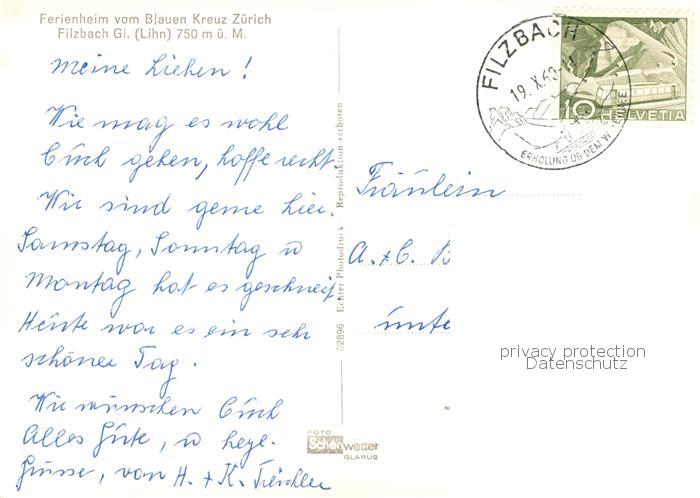 Ferienheim vom Blauen Kreuz Zürich
Filzbach Gl. (Lihn) 750 m ü. M.
Meine Lieben!
Wie mag es wohl
Euch gehen, hoffe recht.
Wir sind gerne hier.
Samstag, Sonntag u
Montag hat es geschneit.
Heute war es ein sehr
schöner Tag.
Wir wünschen Euch
Alles Gute, u herzl.
Grüsse, von H. + K.
02896 Echter Photodruck Reproduktion verboten
FOTO
Schönwetter
GLARUS
FILZBACH
19. X. 60
ERHOLUNG OB DEM
10
HELVETIA
Fräulein
A. + C. B
unte
privacy protection
Datenschutz